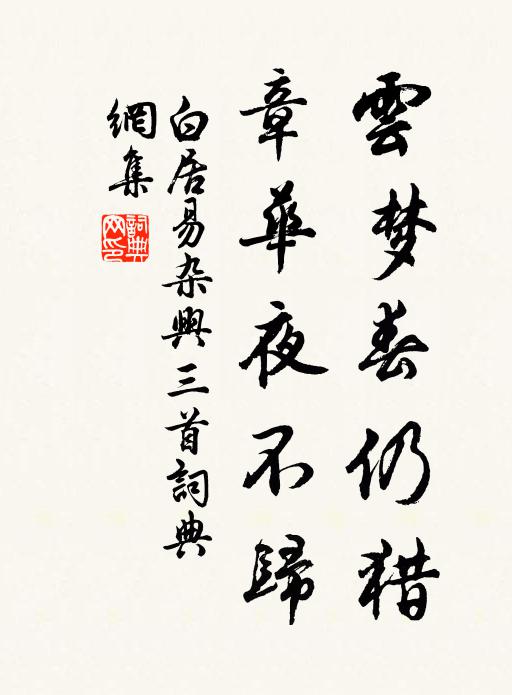 雲梦春仍猎
章華夜不歸
白居易杂興三首詞典
網集
詞典網印